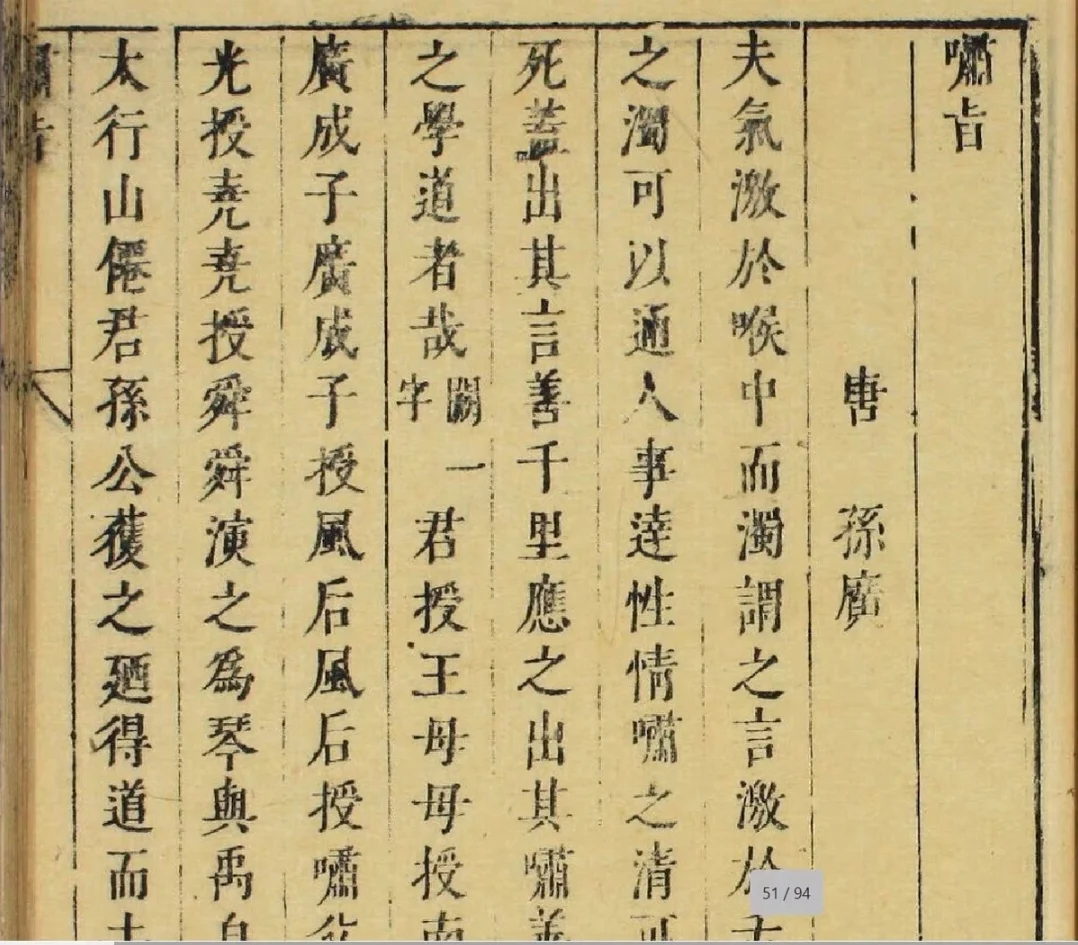 嘯旨
唐 孫廣
夫氣激於喉中而濁謂之言激於
之濁可以通人事達性情嘯之清可
死蓋出其言善千里應之出其嘯善
之學道者哉闕字一君授王母母授南
廣成子廣成子授風后風后授嘯父
光授堯堯授舜舜演之為琴與禹自
太行山僊君孫公獲之廼得道而
嘯旨
51 / 94